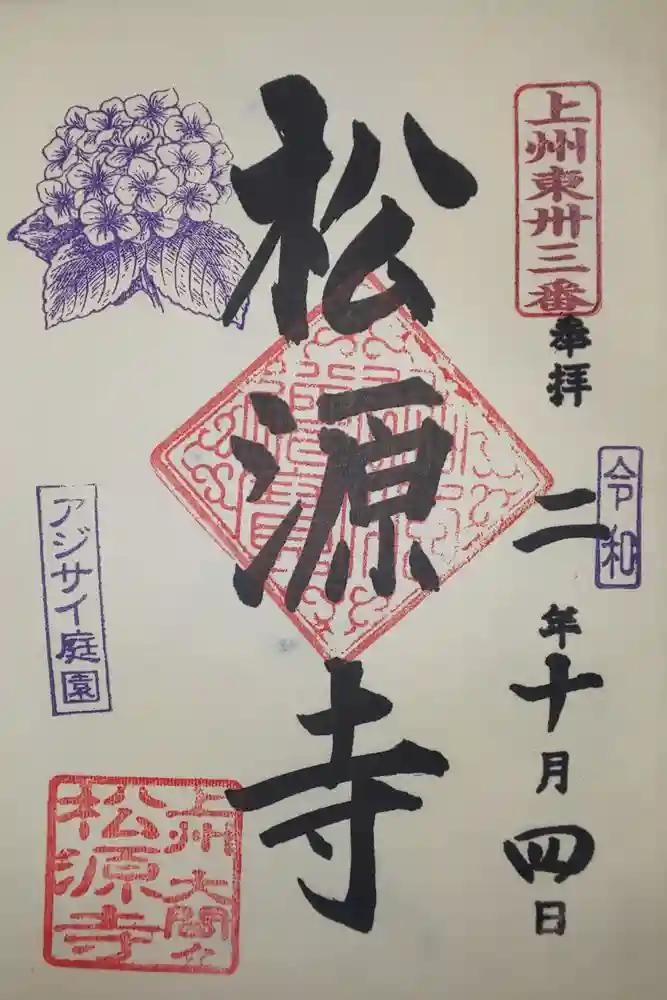 上州東卅三番
奉拝
令和
二年十月四日
松源寺
アジサイ庭園
上州大間々
松源寺